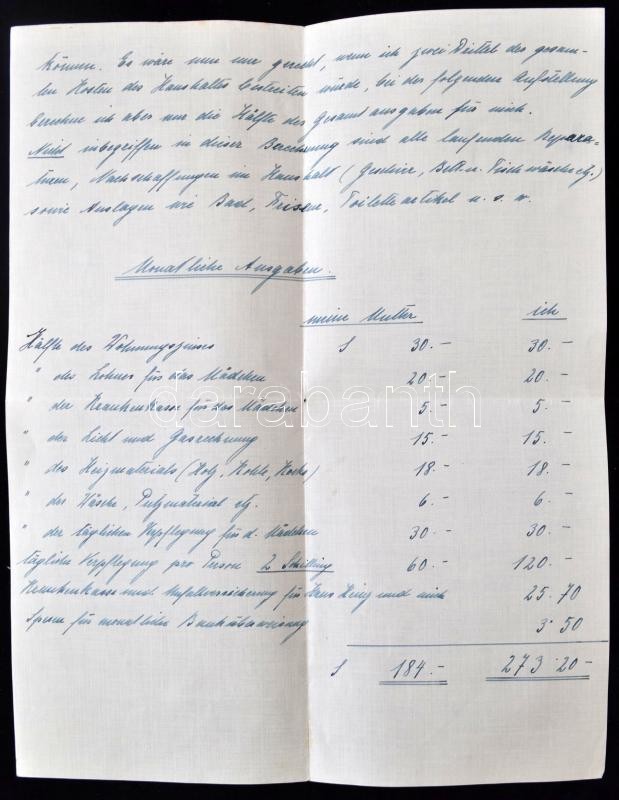 können. Es wäre nun nur gerecht, wenn ich zwei Drittel des gesam-
ten Kosten des Haushaltes bestreiten würde, bei der folgenden Aufstellung
berechne ich aber nur die Hälfte der Gesamtausgaben für mich.
Nicht inbegriffen in dieser Berechnung sind alle laufenden Repara-
turen, Nachschaffungen im Haushalt (Geschirr, Bett.u. Tischwäsche etz.)
sowie Auslagen wie Bad, Friseur, Toiletteartikel u. s. w.
Monatliche Ausgaben.
meine Mutter ich
Hälfte des Wohnungszinses S 30.- 30.-
" des Lohnes für das Mädchen 20.- 20.-
" der Krankenkasse für das Mädchen 5.- 5.-
" der Licht und Gasrechnung 15.- 15.-
" des Heizmaterials (Holz, Kohle, Koks) 18.- 18.-
" der Wäsche, Putzmaterial etz. 6.- 6.-
" der täglichen Verpflegung für d. Mädchen 30.- 30.-
tägliche Verpflegung pro Person 2 Schilling 60.- 120.-
Krankenkasse und Unfallversicherung für Hans Heinz und mich 25.70
Spesen für monatliche Banküberweisung 3.50
S 184.- 273.20-
darabanth